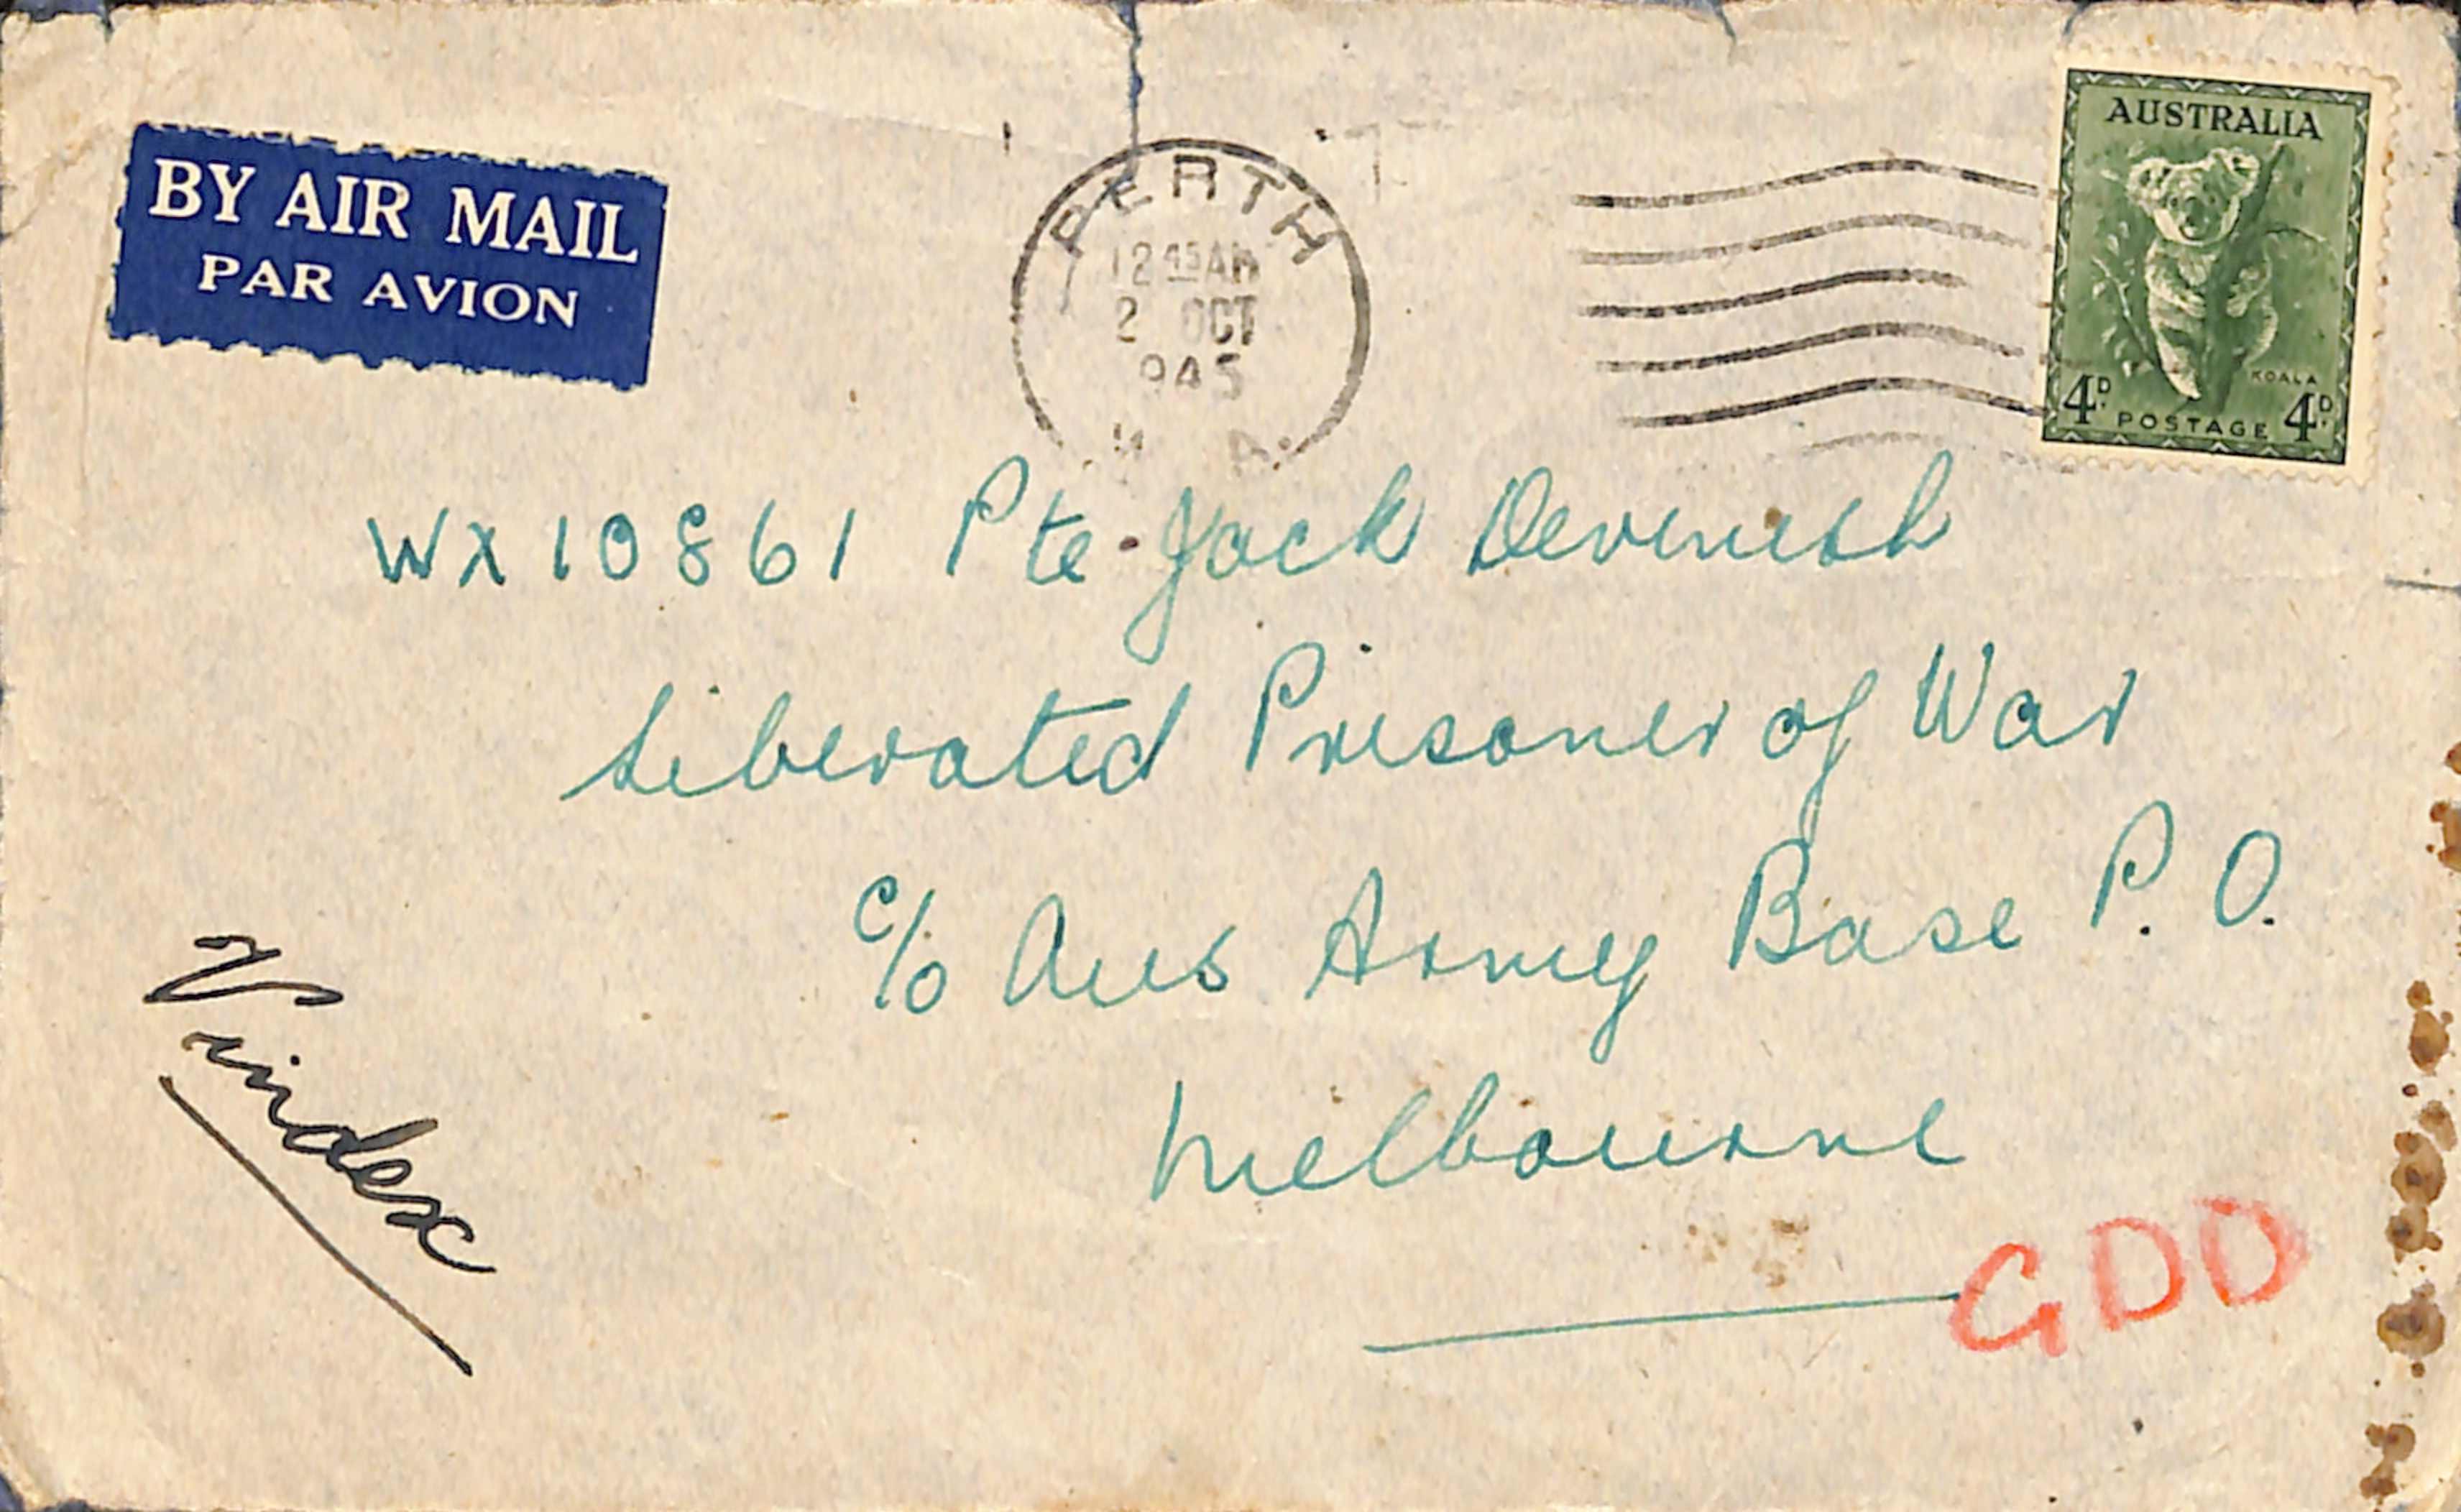 BY AIR MAIL
PAR AVION
PERTH
12 45 AM
2 OCT
945
W. A.
AUSTRALIA
KOALA
4D. POSTAGE 4D.
WX10861 Pte. Jack Devenish
Liberated Prisoner of War
c/o Aus Army Base P. O.
Melbourne
Vindex
GDD